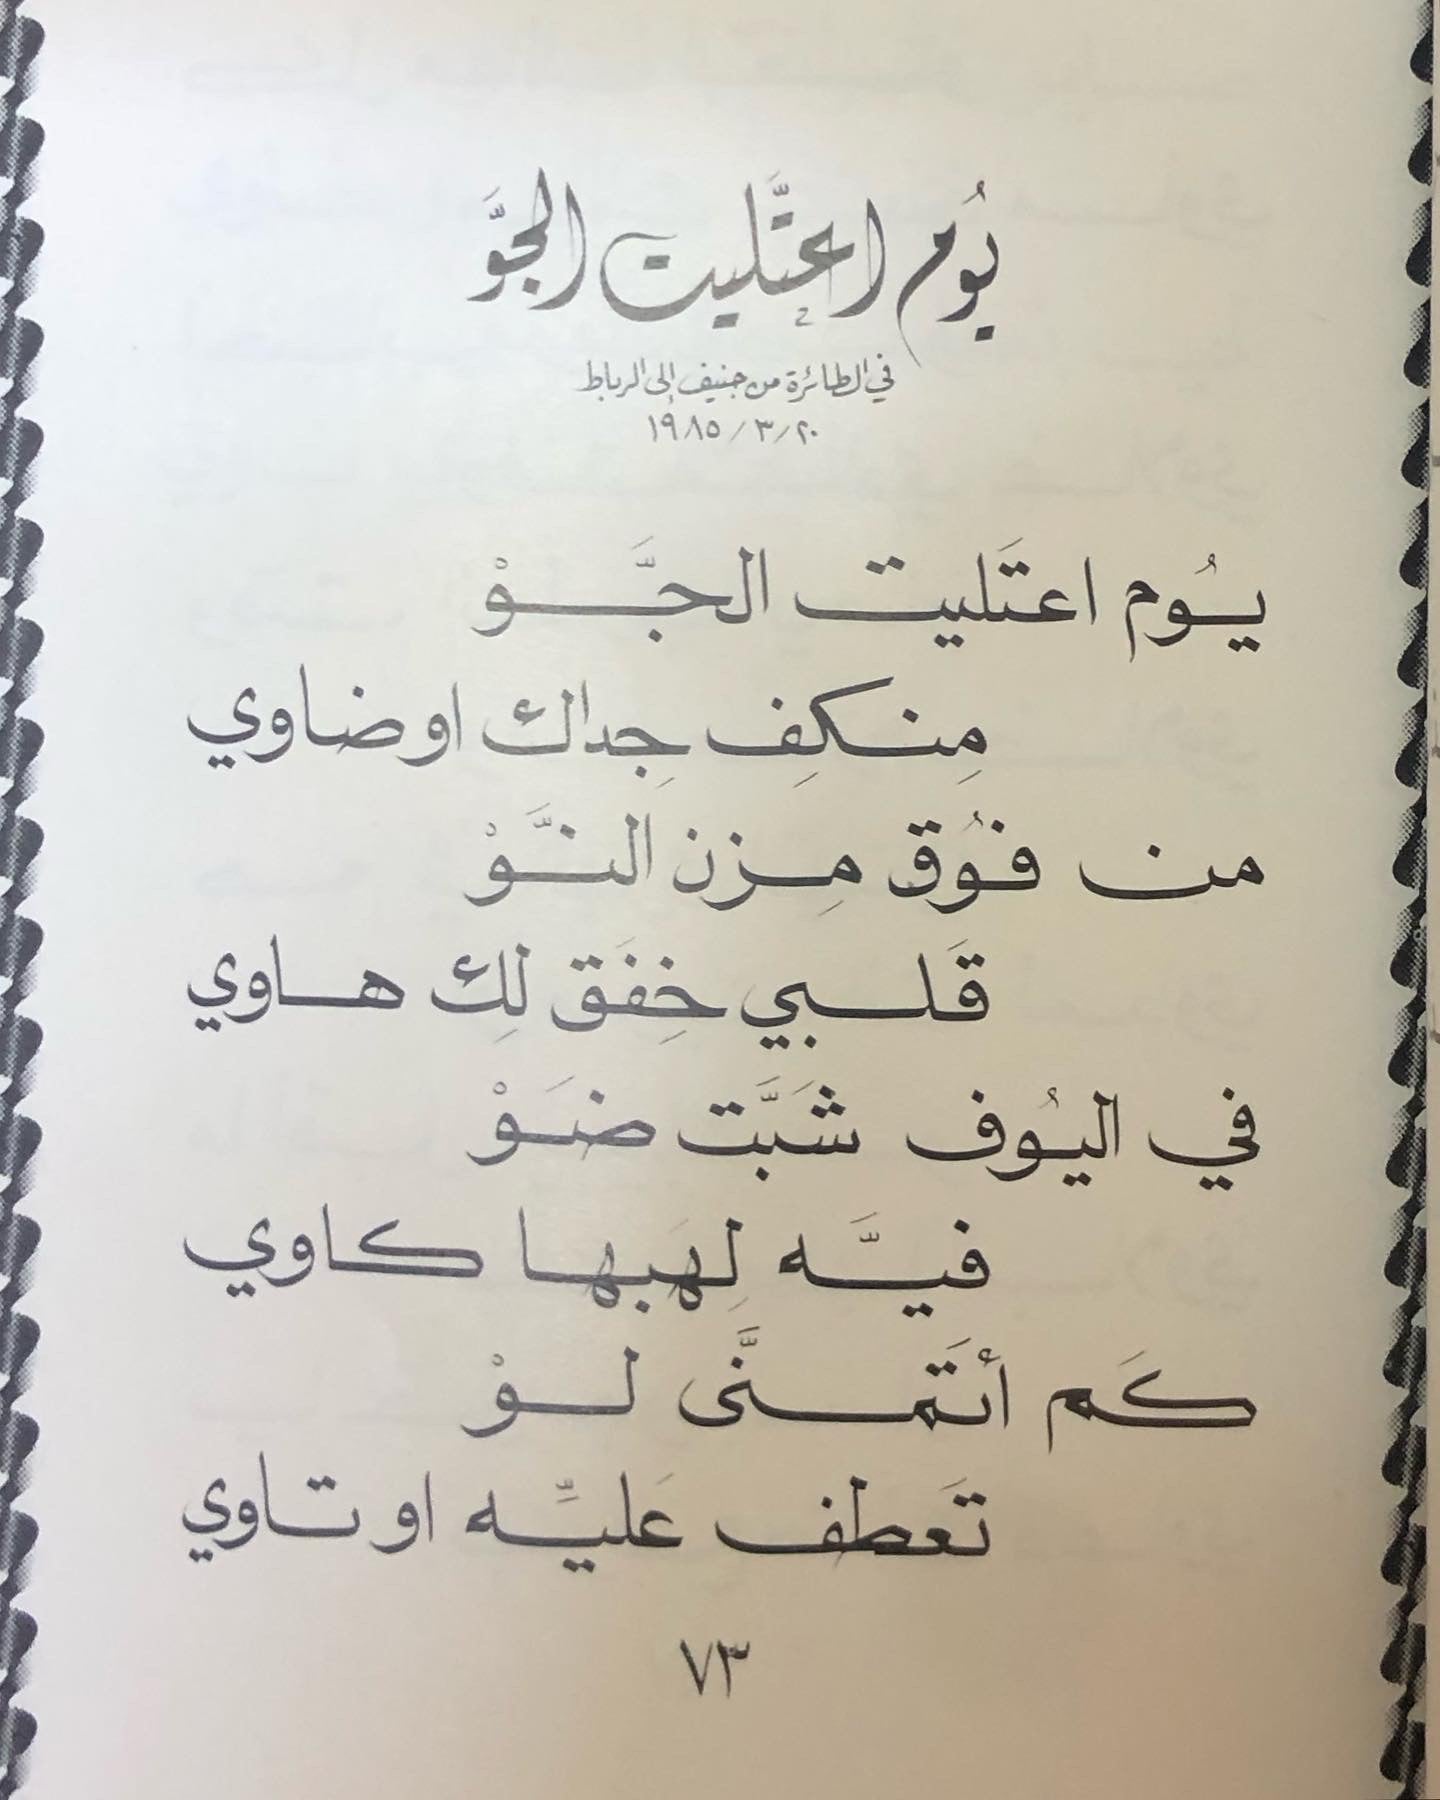 يُوم اعتَّليت الجوَّ
في الطائرة من جنيف إلى الرباط
٢٠/٣/١٩٨٥
يُوم اعتَليت الجَّوْ
مِنكِف جِداك او ضاوي
من فُوق مِزن النَّوْ
قَلبي خِفَق لِك هاوي
في اليُوف شَبَّت ضَوْ
فيَّه لِهَبها كاوي
كَم أتَمنَّى لوْ
تَعطف عَليِّه او تاوي
٧٣